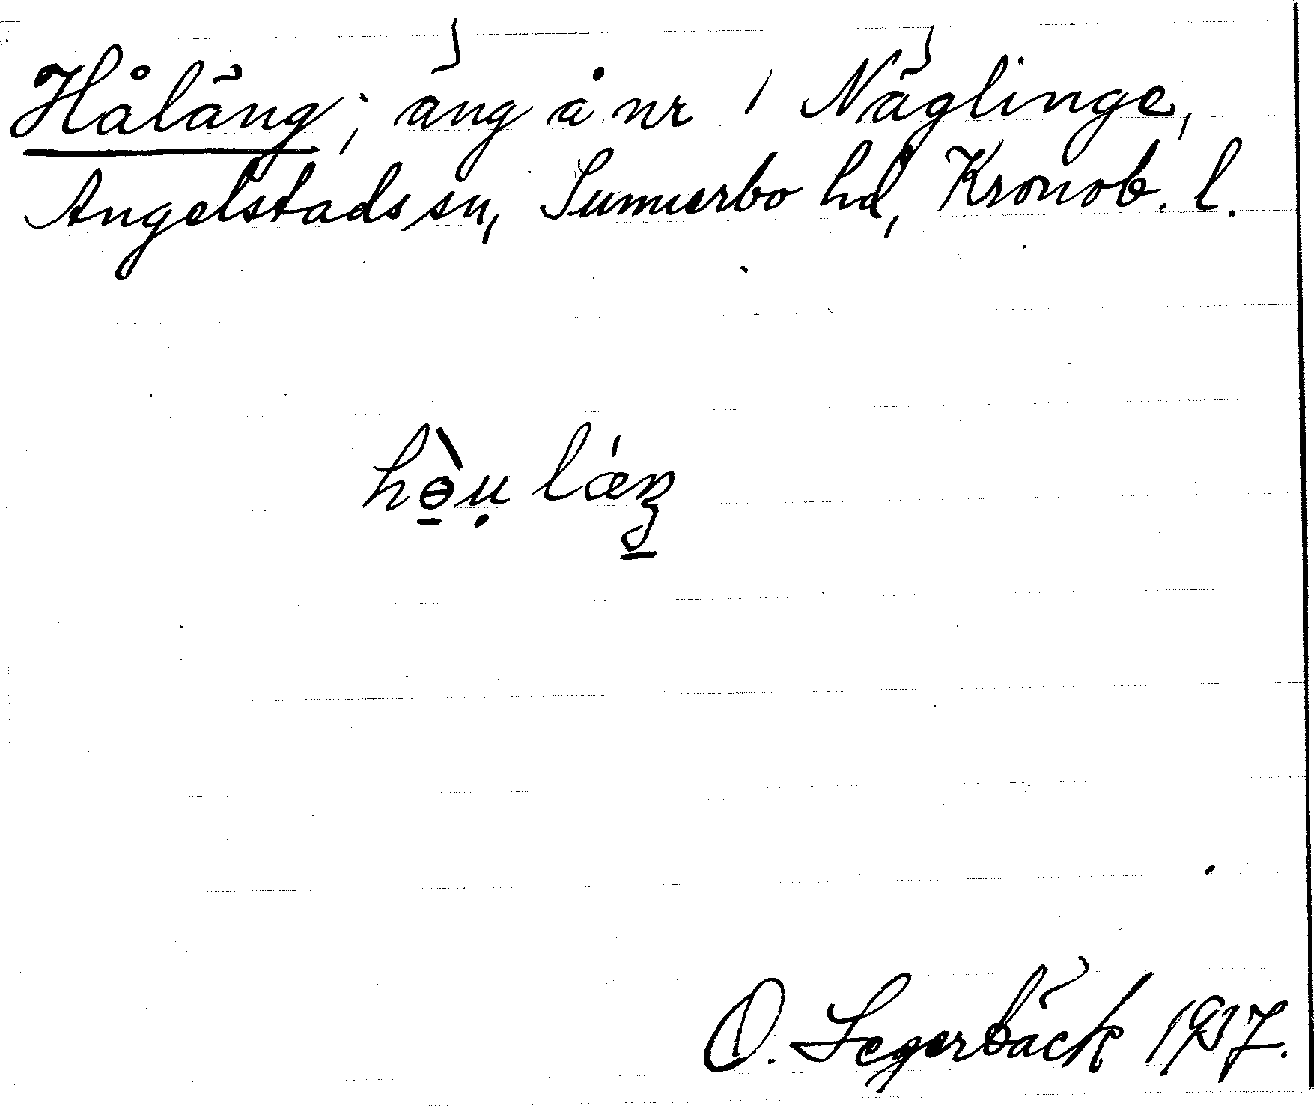 Håläng; äng å nr 1 Näglinge,
Angelstads sn, Sunnerbo hd, Kronob. l.
hòu láŋ
O. Segerbäck 1937.